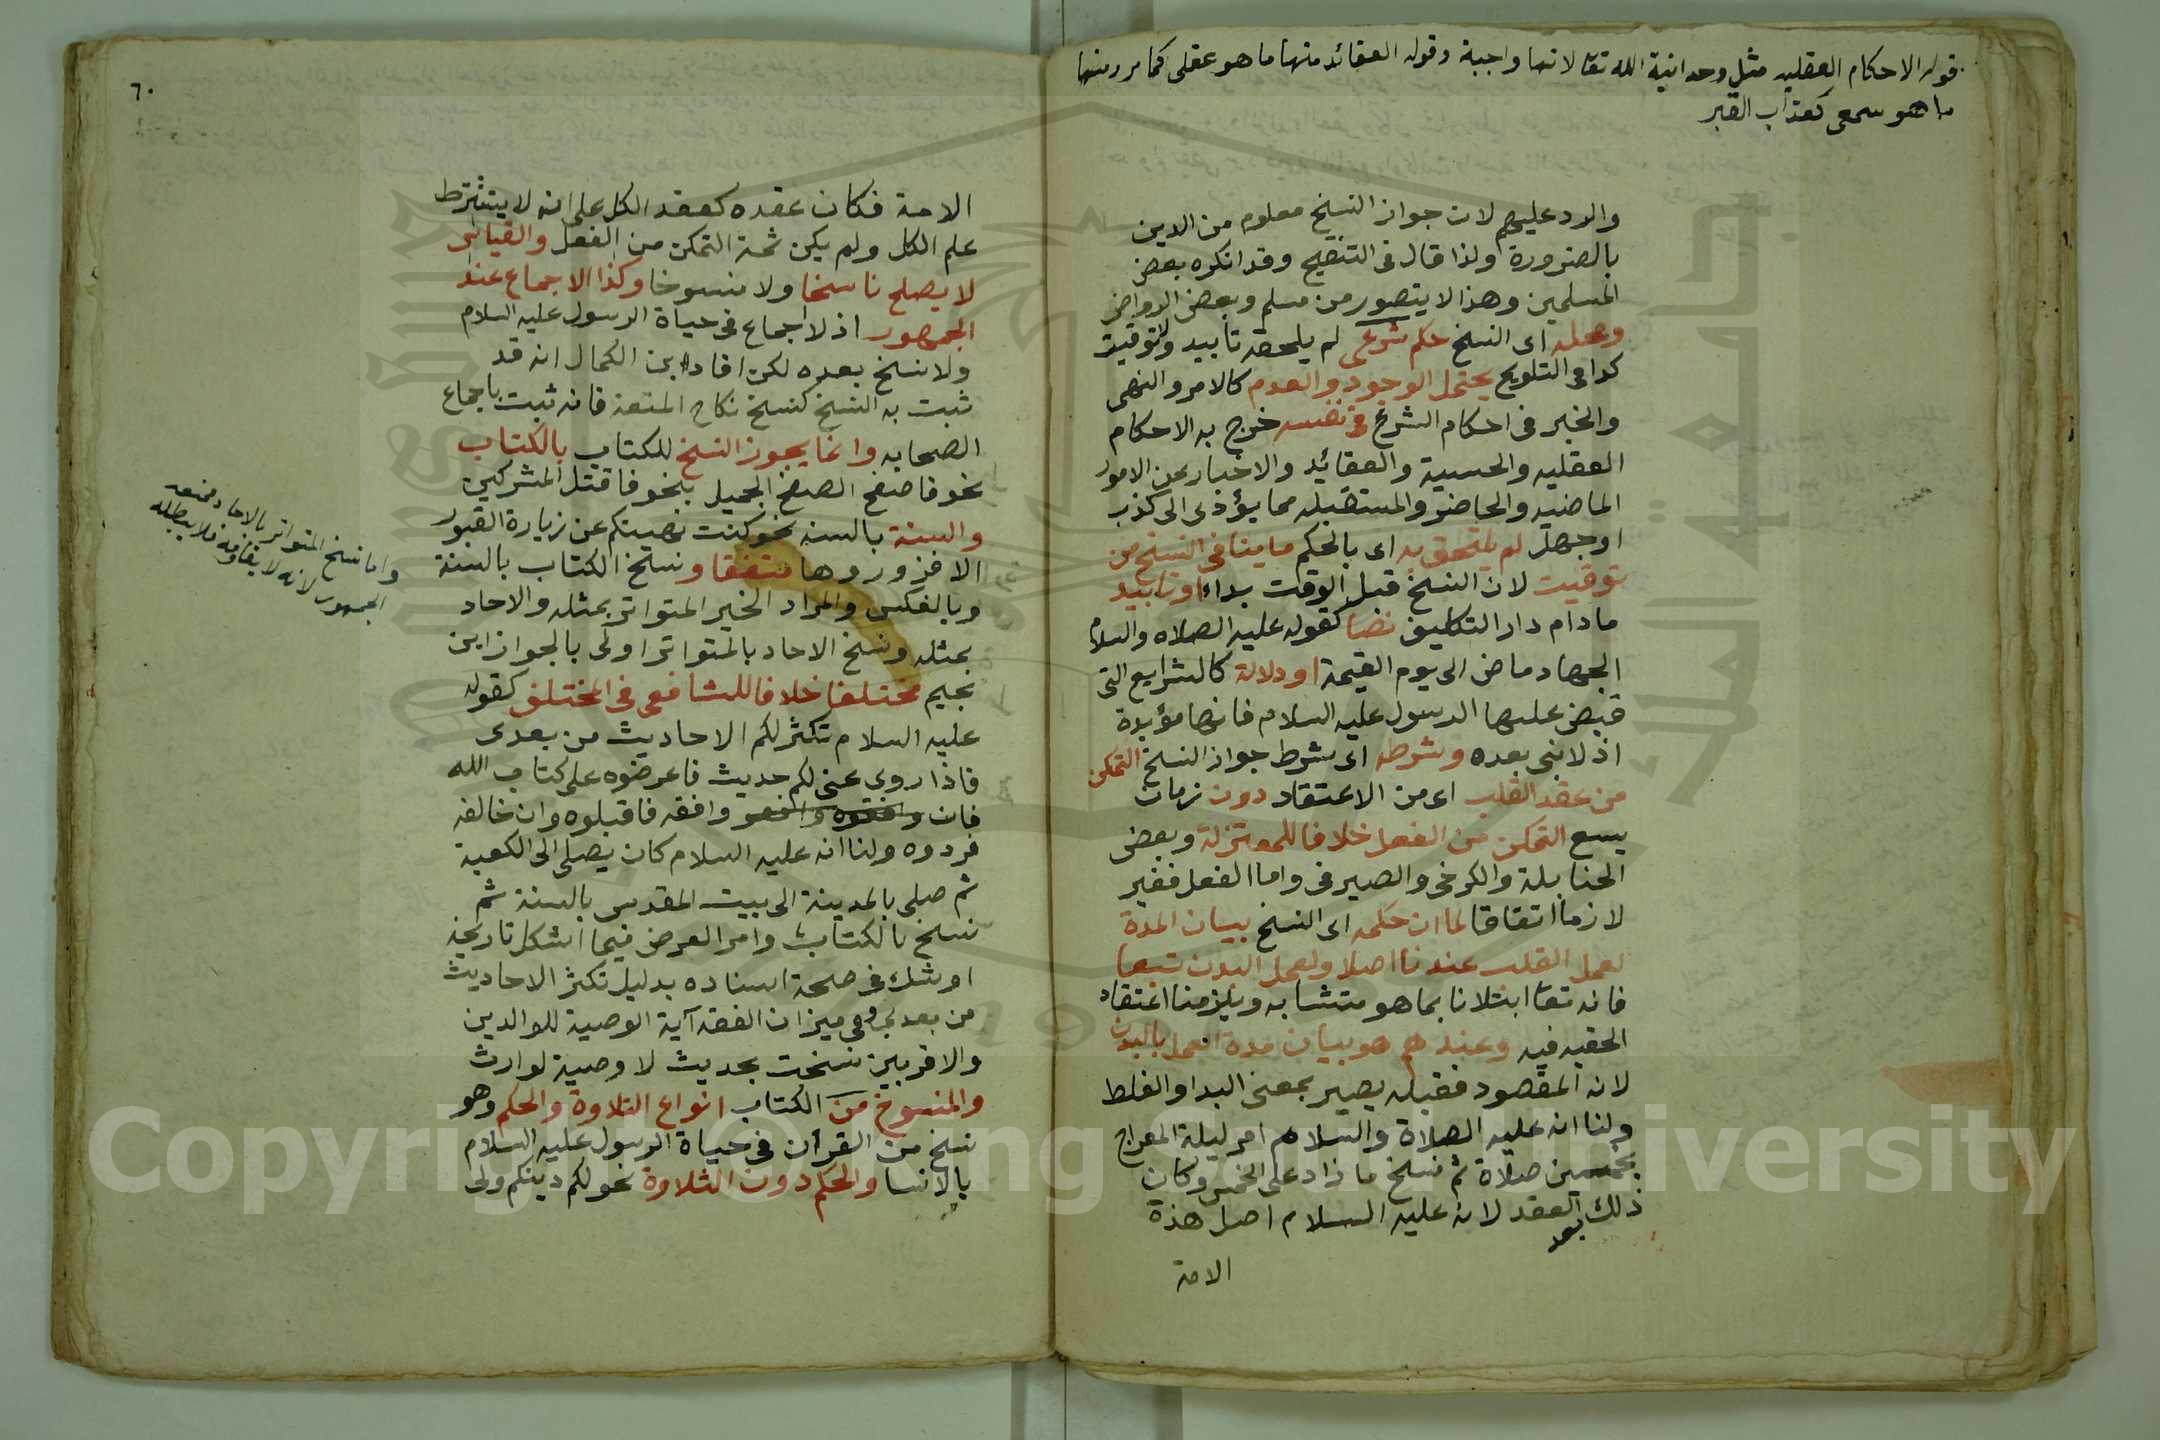 قوله الاحكام العقليه مثل وحدانية الله تعا لانها واجبة وقوله العقائد منها ما هو عقلى كما مر ومنها
ما هو سمعى كعذاب القبر
والرد عليهم لان جواز النسخ معلوم من الدين
بالضرورة ولذا قال فى التنقيح وقد انكره بعض
المسلمين وهذا لا يتصور من مسلم وبعض الروافض
ومحله اى النسخ حكم شرعى لم يلحقه تابيد ولا توقيت
كذا فى التلويح يحتمل الوجود والعدم كالامر والنهى
والخبر فى احكام الشرع فى نفسه خرج به الاحكام
العقليه والحسية والعقائد والاخبار عن الامور
الماضيه والحاضر والمستقبله مما يؤدى الى كذب
اوجهل لم يلتحق به اى بالحكم ما ينافى النسخ من
توقيت لان النسخ قبل الوقت بداء او تابيد
مادام دار التكليف نصا كقوله عليه الصلاه والسلام
الجهاد ماض الى يوم القيمة او دلالة كالشرايع التى
قبض عليها الرسول عليه السلام فانها مؤبدة
اذ لا نبى بعده وشرطه اى شرط جواز النسخ التمكن
من عقد القلب اى من الاعتقاد دون زمان
يسع التمكن من الفعل خلافا للمعتزلة وبعض
الحنابلة والكرخى والصيرفى واما الفعل فغير
لازم اتفاقا لما ان حكمه اى النسخ بيان المدة
لعمل القلب عندنا اصلا ولعمل البدن تبعا
فانه تعا ابتلانا بما هو متشابه ويلزمنا اعتقاد
الحقيه فيه وعندهم هو بيان مدة العمل بالبدن
لانه المقصود فقبله يصير بمعنى البدا والغلط
ولنا انه عليه الصلاة والسلام امر ليلة المعراج
بخمسين صلاة ثم نسخ ما زاد على الخمس وكان
ذلك بعد العقد لانه عليه السلام اصل هذة
الامة
٦٠
الامة فكان عقده كعقد الكل على انه لا يشترط
علم الكل ولم يكن ثمة التمكن من الفعل والقياس
لا يصلح ناسخا ولا منسوخا وكذا الاجماع عند
الجمهور اذ لا اجماع فى حياة الرسول عليه السلام
ولا نسخ بعده لكن افاد ابن الكمال انه قد
ثبت به النسخ كنسخ نكاح المتعة فانه ثبت باجماع
الصحابه وانما يجوز النسخ للكتاب بالكتاب
نحو فاصفح الصفح الجميل بنحو فاقتل المشركين
والسنة بالسنه نحو كنت نهيتكم عن زيارة القبور
الا فزوروها متفقا ونسخ الكتاب بالسنة
وبالعكس والمراد الخبر المتواتر بمثله والاحاد
بمثله ونسخ الاحاد بالمتواتر اولى بالجواز ابن
نجيم مختلفا خلافا للشافعى فى المختلف كقوله
عليه السلام تكثر لكم الاحاديث من بعدى
فاذا روى عنى لكم حديث فاعرضوه على كتاب الله
فان وافقه فاقبلوه وان خالفه
فردوه ولنا انه عليه السلام كان يصلى الى الكعبة
ثم صلى بالمدينة الى بيت المقدس بالسنة ثم
نسخ بالكتاب وامر العرض فيما اشكل تاريخه
اوشك فى صحة اسناده بدليل تكثر الاحاديث
من بعدى وفى ميزان الفقه آية الوصية للوالدين
والاقربين نسخت بحديث لا وصية لوارث
والمنسوخ من الكتاب انواع التلاوة والحكم وهو
نسخ من القرأن فى حياة الرسول عليه السلام
بالانسا والحكم دون التلاوة نحو لكم دينكم ولى
واما نسخ المتواتر بالاحاد فمنعه
الجمهور لانه لا يقاومه فلا يبطله
Copyright © King Saud University